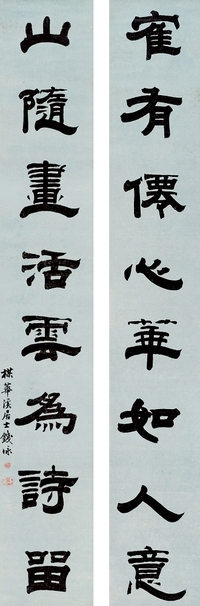 隺有僊心華如人意
山隨畫活雲為詩畱
楳華溪居士錢泳